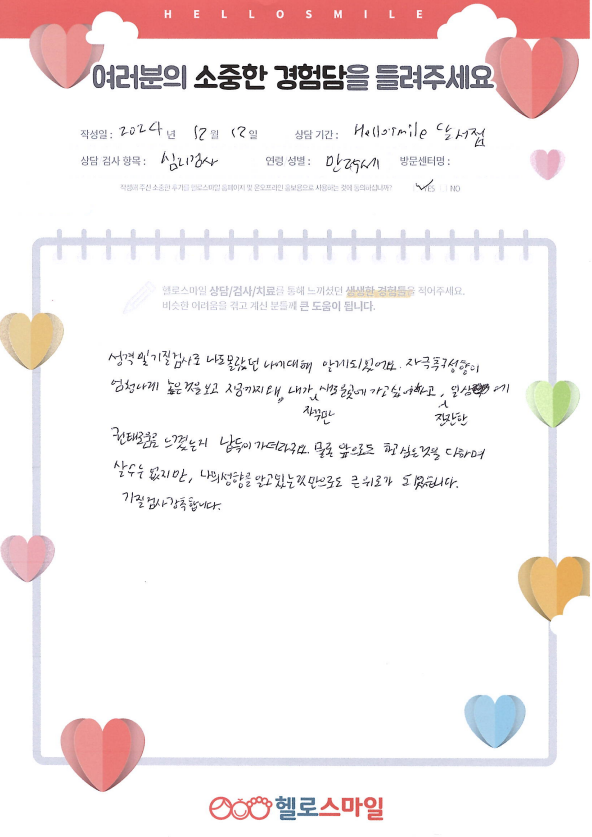 HELLOSMILE
여러분의 소중한 경험담을 들려주세요
작성일 : 2024 년 12 월 12 일 상담 기간 : Hellosmile 달서점
상담 검사 항목 : 심리검사 연령 성별 : 만 세 방문센터명 :
작성해 주신 소중한 후기를 헬로스마일 홈페이지 및 온오프라인 홍보용으로 사용하는 것에 동의하십니까? ✓YES NO
헬로스마일 상담/검사/치료를 통해 느끼셨던 생생한 경험들을 적어주세요.
비슷한 어려움을 겪고 계신 분들께 큰 도움이 됩니다.
성격 및 기질검사로 나도 몰랐던 나에 대해 알게 되었어요. 자극추구성향이
엄청나게 높은것을 보고 지금까지 왜, 내가 자꾸만 새로운곳에 가고싶어하고, 잔잔한 일상에
권태로움을 느꼈는지 납득이 가더라구요. 물론 앞으로도 하고 싶은것을 다하며
살수는 없지만, 나의 성향을 알고있는것 만으로도 큰 위로가 되었습니다.
기질검사 강추합니다.
헬로스마일